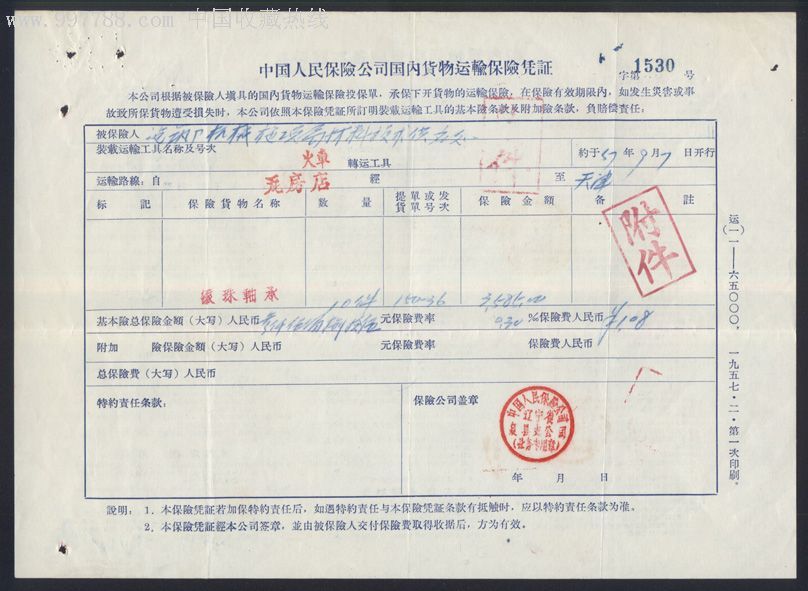 www.997788.com 中国收藏热线
中国人民保險公司国内貨物运輸保險凭証
字第 1530 号
本公司根据被保險人填具的国内貨物运輸保險投保單，承保下开貨物的运輸保險，在保險有效期限内，如发生災害或事
故致所保貨物遭受損失时，本公司依照本保險凭証所訂明裝載运輸工具的基本險条款及附加險条款，負賠償責任：
被保險人
裝載运輸工具名称及号次 火車 轉运工具 約于57年9月7日开行
运輸路線：自 瓦房店 經 至 天津
标記 保險貨物名称 数量 提單或发貨單号次 保險金額 备註
附件
滾珠軸承 10件 150-36 3,585.00
基本險总保險金額（大写）人民币 元保險費率 0.30 ‰保險費人民币 ¥1.08
附加 險保險金額（大写）人民币 元保險費率 保險費人民币
总保險費（大写）人民币
特約責任条款：
保險公司盖章
中国人民保險公司
辽宁省
年 月 日
說明：1．本保險凭証若加保特約責任后，如遇特約責任与本保險凭証条款有抵触时，应以特約責任条款为准。
2．本保險凭証經本公司簽章，並由被保險人交付保險費取得收据后，方为有效。
运（一一）——六五〇〇〇． 一九五七·二·第一次印刷．